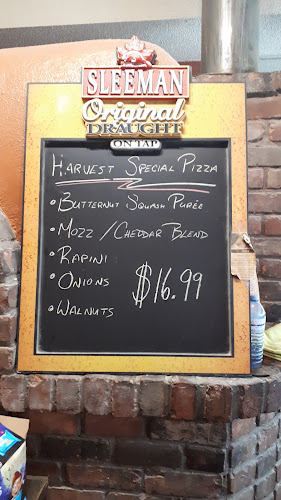 SLEEMAN
Original
DRAUGHT
ON TAP
HARVEST SPECIAL PIZZA
• BUTTERNUT SQUASH PURÉE
• MOZZ / CHEDDAR BLEND
• RAPINI
• ONIONS
• WALNUTS
$16.99